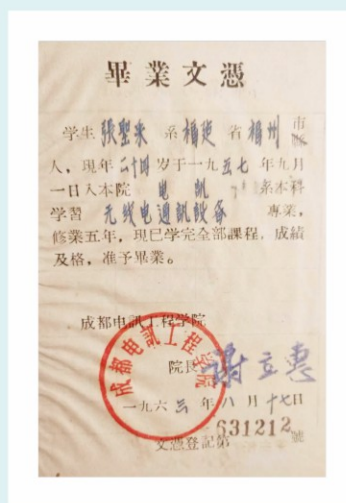 畢業文憑
学生 張聖來 系 福建 省 福州 市縣
人，現年 二十四 岁于一九 五七 年九月
一日入本院 电机 系本科
学習 无线电通訊設备 專業，
修業五年，現已学完全部課程，成績
及格，准予畢業。
成都电訊工程学院
院長 謝立惠
成都电訊工程学院
一九六 三 年 八 月 十七 日
文憑登記第 631212 號